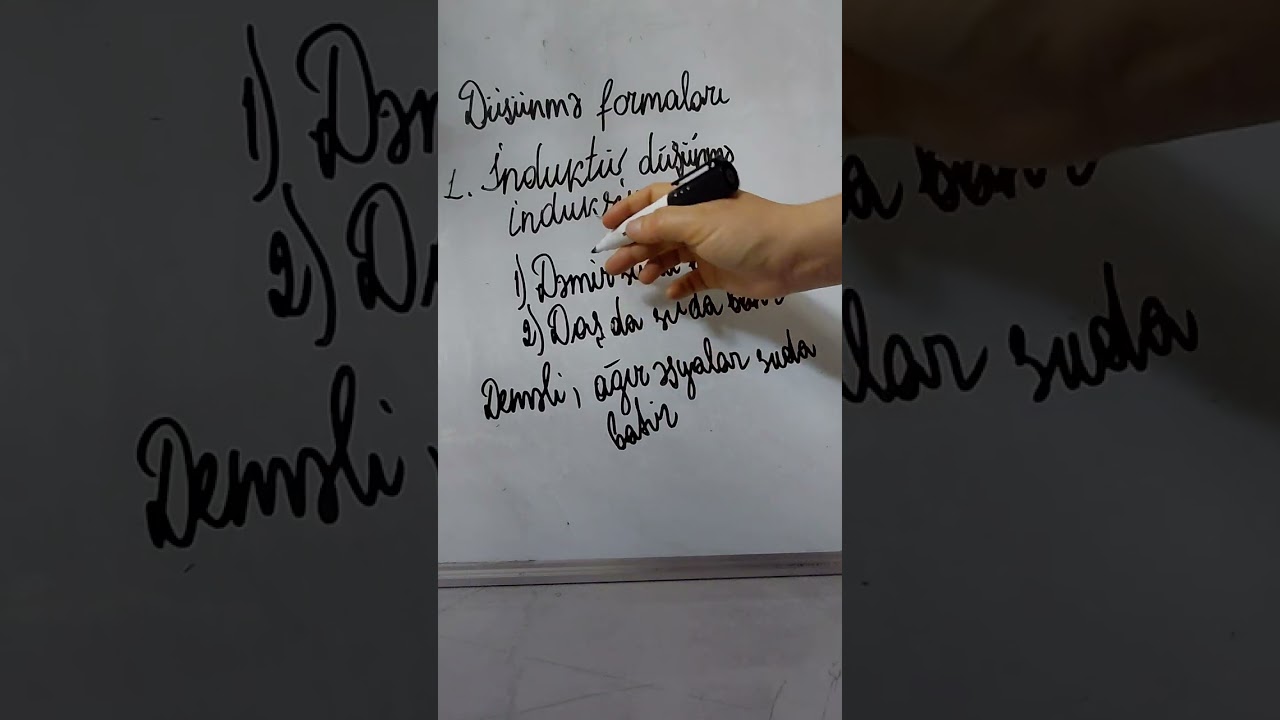 Düşünmə formaları
1. İnduktiv düşünmə
induksiy
1) Dəmir suda
2) Daş da suda batır
Deməli, ağır əşyalar suda
batır